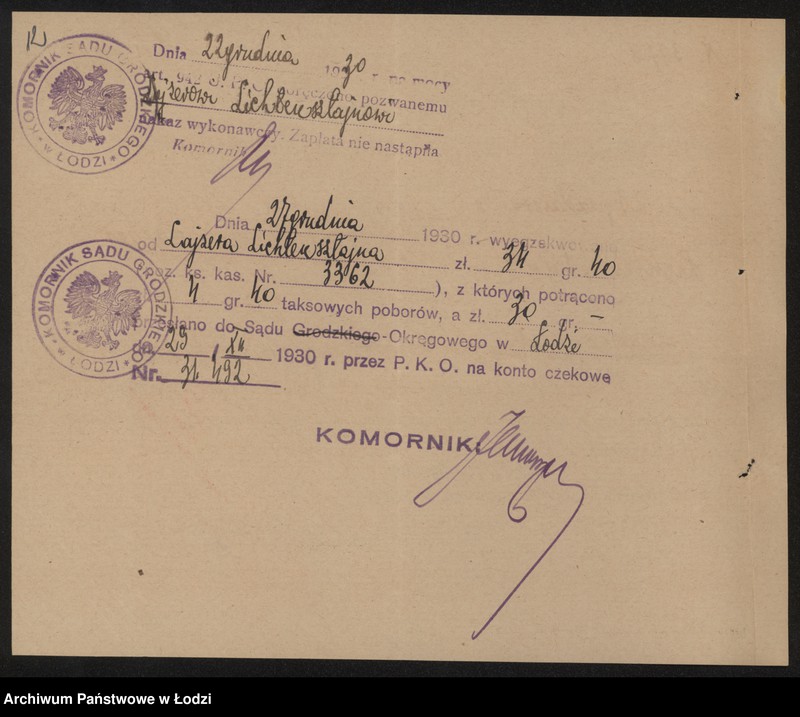 12
KOMORNIK SĄDU GRODZKIEGO
w ŁODZI
Dnia 22 grudnia 1930 r. na mocy
Art. 942 pozwanemu
Lajzerowi Lichtensztajnowi
nakaz wykonawczy. Zapłata nie nastąpiła
Komornik
Dnia 27 grudnia 1930 r. wyegzekwo
od Lajzera Lichtensztajna zł. 34 gr. 40
poz. ks. kas. Nr. 3362 ), z których potrącono
4 gr. 40 taksowych poborów, a zł. 30 gr. —
przesłano do Sądu Grodzkiego-Okręgowego w Łodzi
29/XII 1930 r. przez P. K. O. na konto czekowe
Nr. 31.492
KOMORNIK SĄDU GRODZKIEGO
w ŁODZI
KOMORNIK:
Archiwum Państwowe w Łodzi